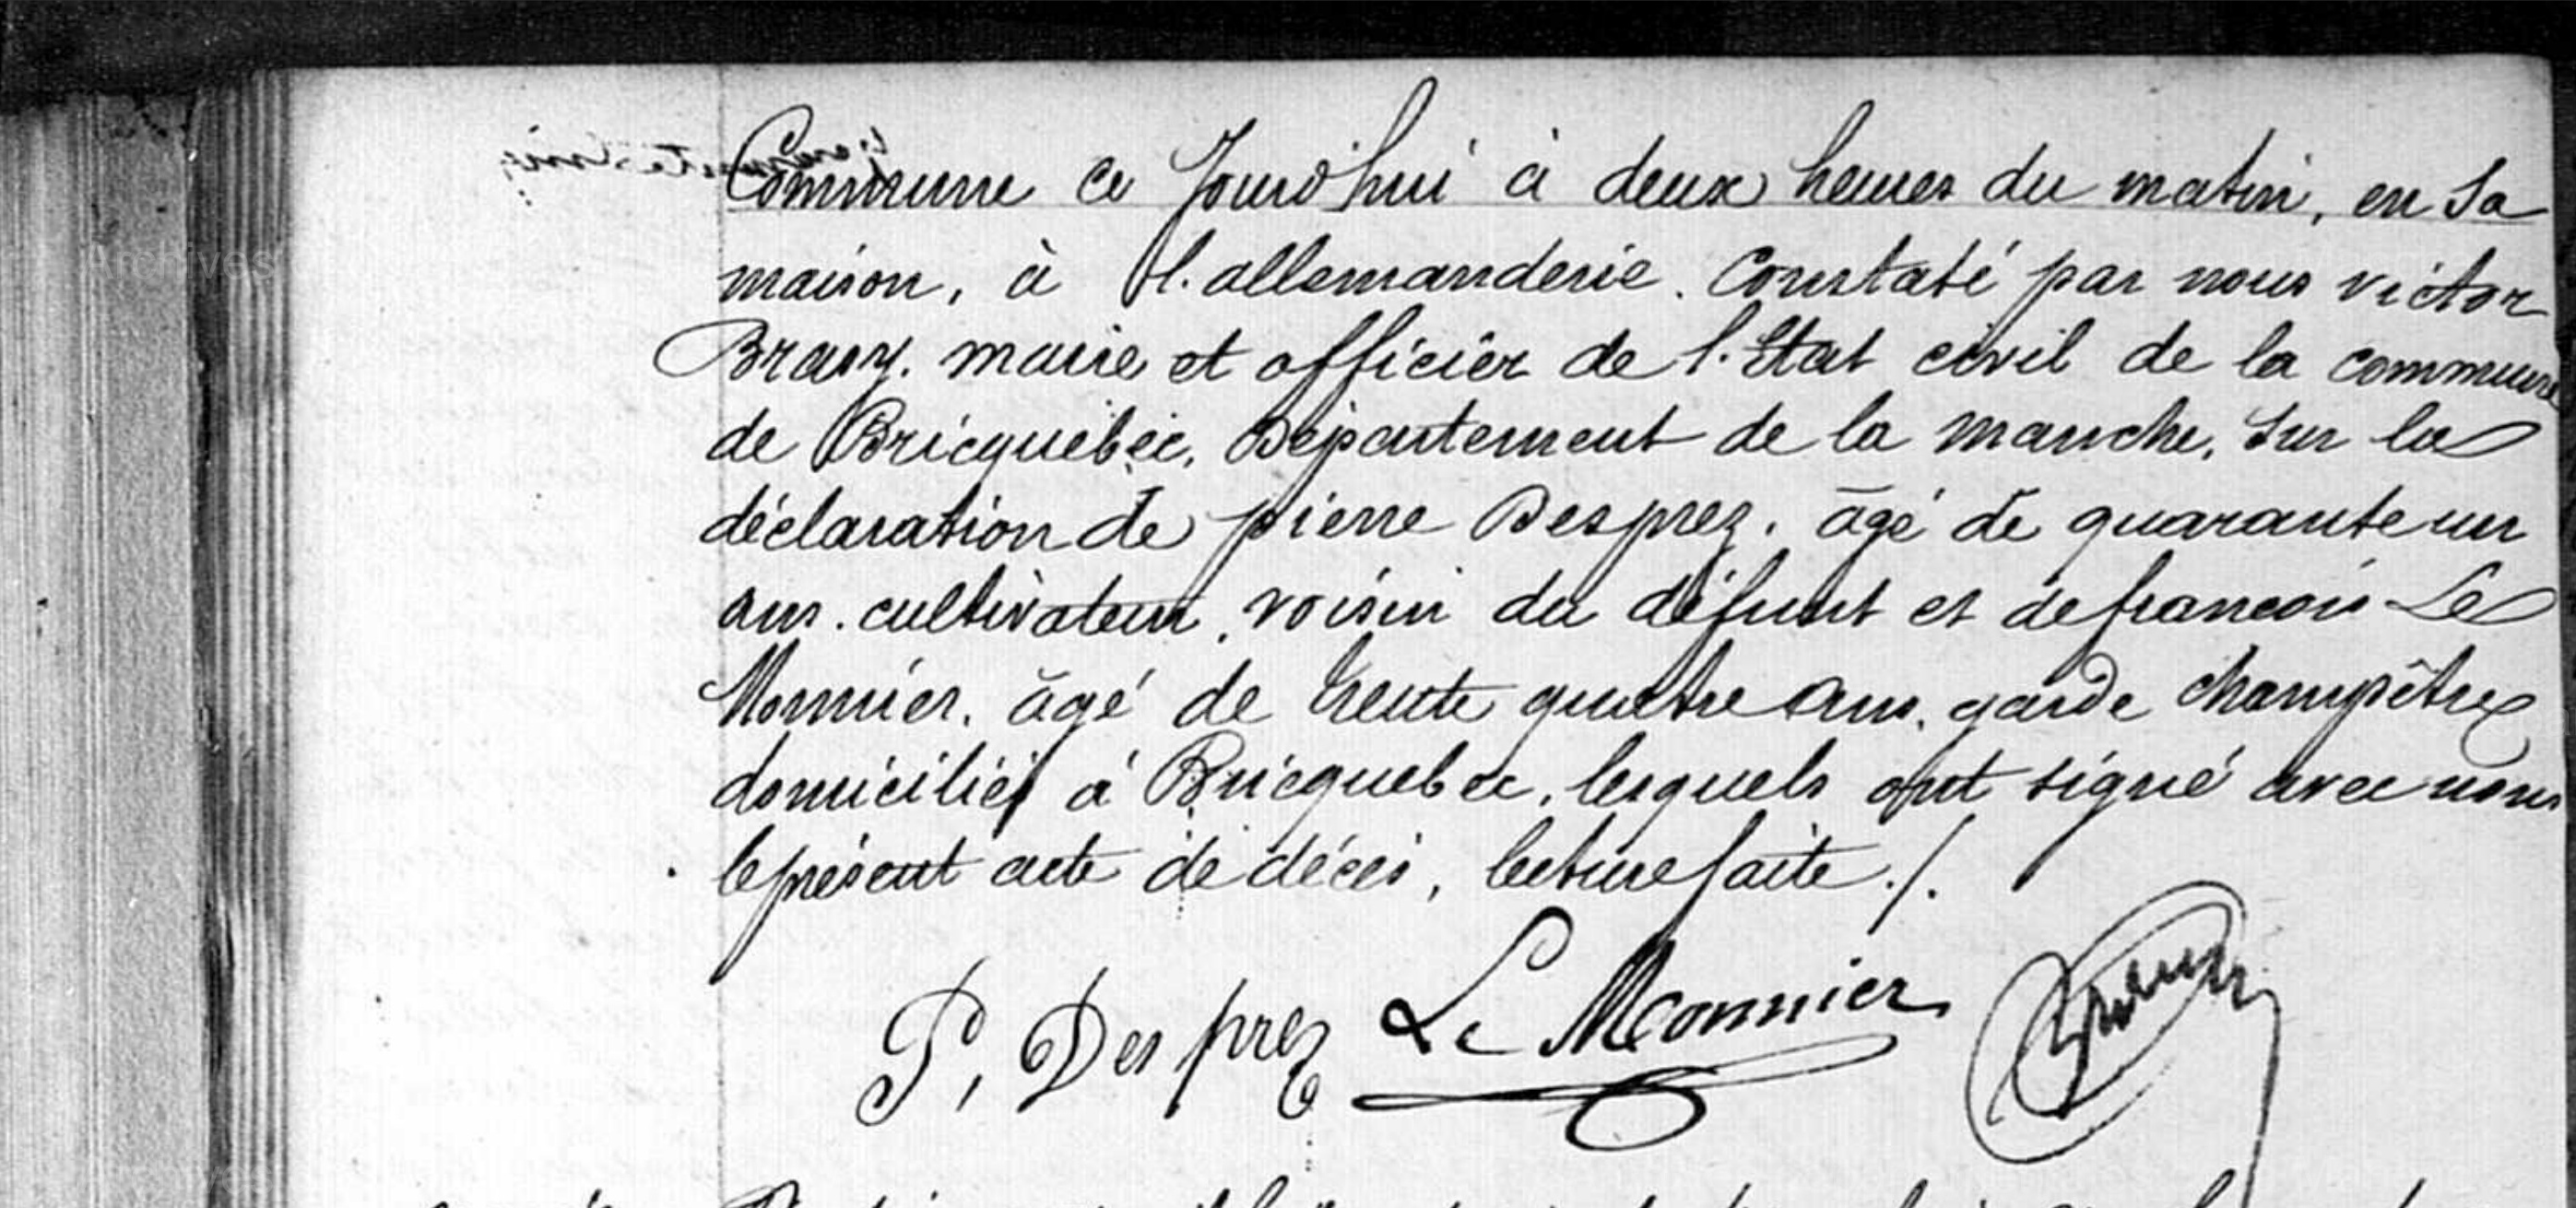 Commune ce Jourd'hui à deux heures du matin, en sa
maison, à l'allemanderie. Constaté par nous victor
Brasy. maire et officier de l'Etat civil de la commune
de Bricquebec, Département de la manche, sur la
déclaration de pierre Desprez. âgé de quarante un
ans. cultivateur, voisin du défunt et de francois Le
Monnier. âgé de trente quatre ans. garde champêtre
domiciliés à Bricquebec, lesquels ont signé avec nous
le présent acte de décès, lecture faite ./.
P, Desprez Le Monnier